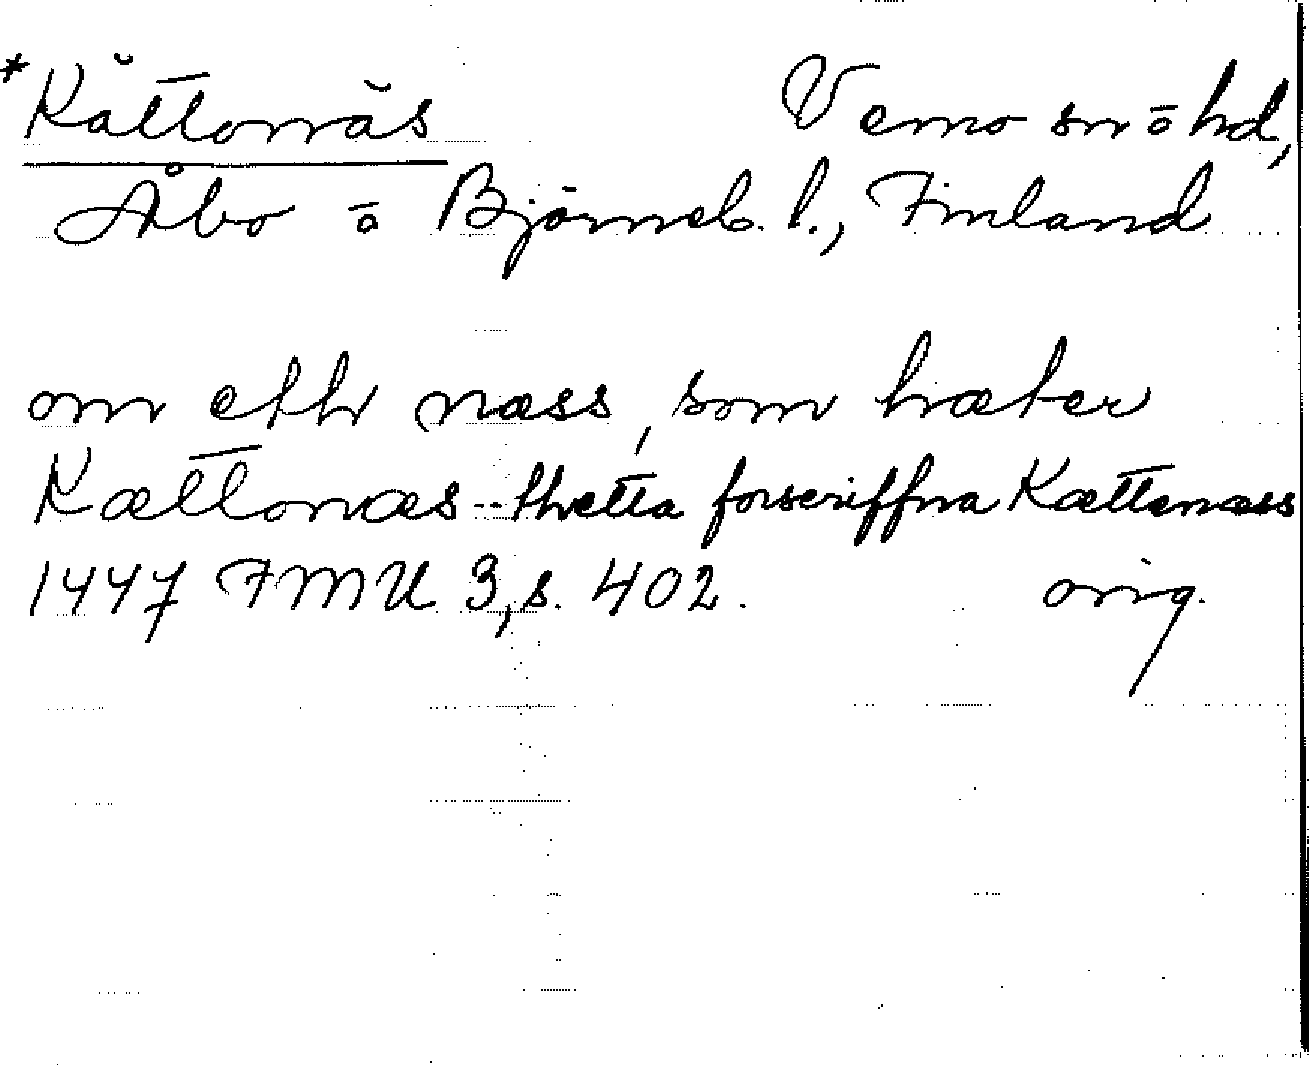 *Kättonäs Vemo sn ō hd,
Åbo ō Björneb. l., Finland
om eth næss, som hæter
Kættonæs -- thetta forscriffna Kættenæss
1447 FMU 3, s. 402. orig.